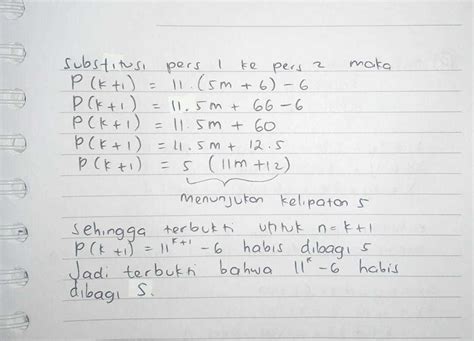 Substitusi pers 1 ke pers 2 maka
P(k+1) = 11.(5m + 6) - 6
P(k+1) = 11.5m + 66 - 6
P(k+1) = 11.5m + 60
P(k+1) = 11.5m + 12.5
P(k+1) = 5 (11m + 12)
Menunjukan kelipatan 5
Sehingga terbukti untuk n = k+1
P(k+1) = 11ᵏ⁺¹ - 6 habis dibagi 5
Jadi terbukti bahwa 11ᵏ - 6 habis
dibagi 5.